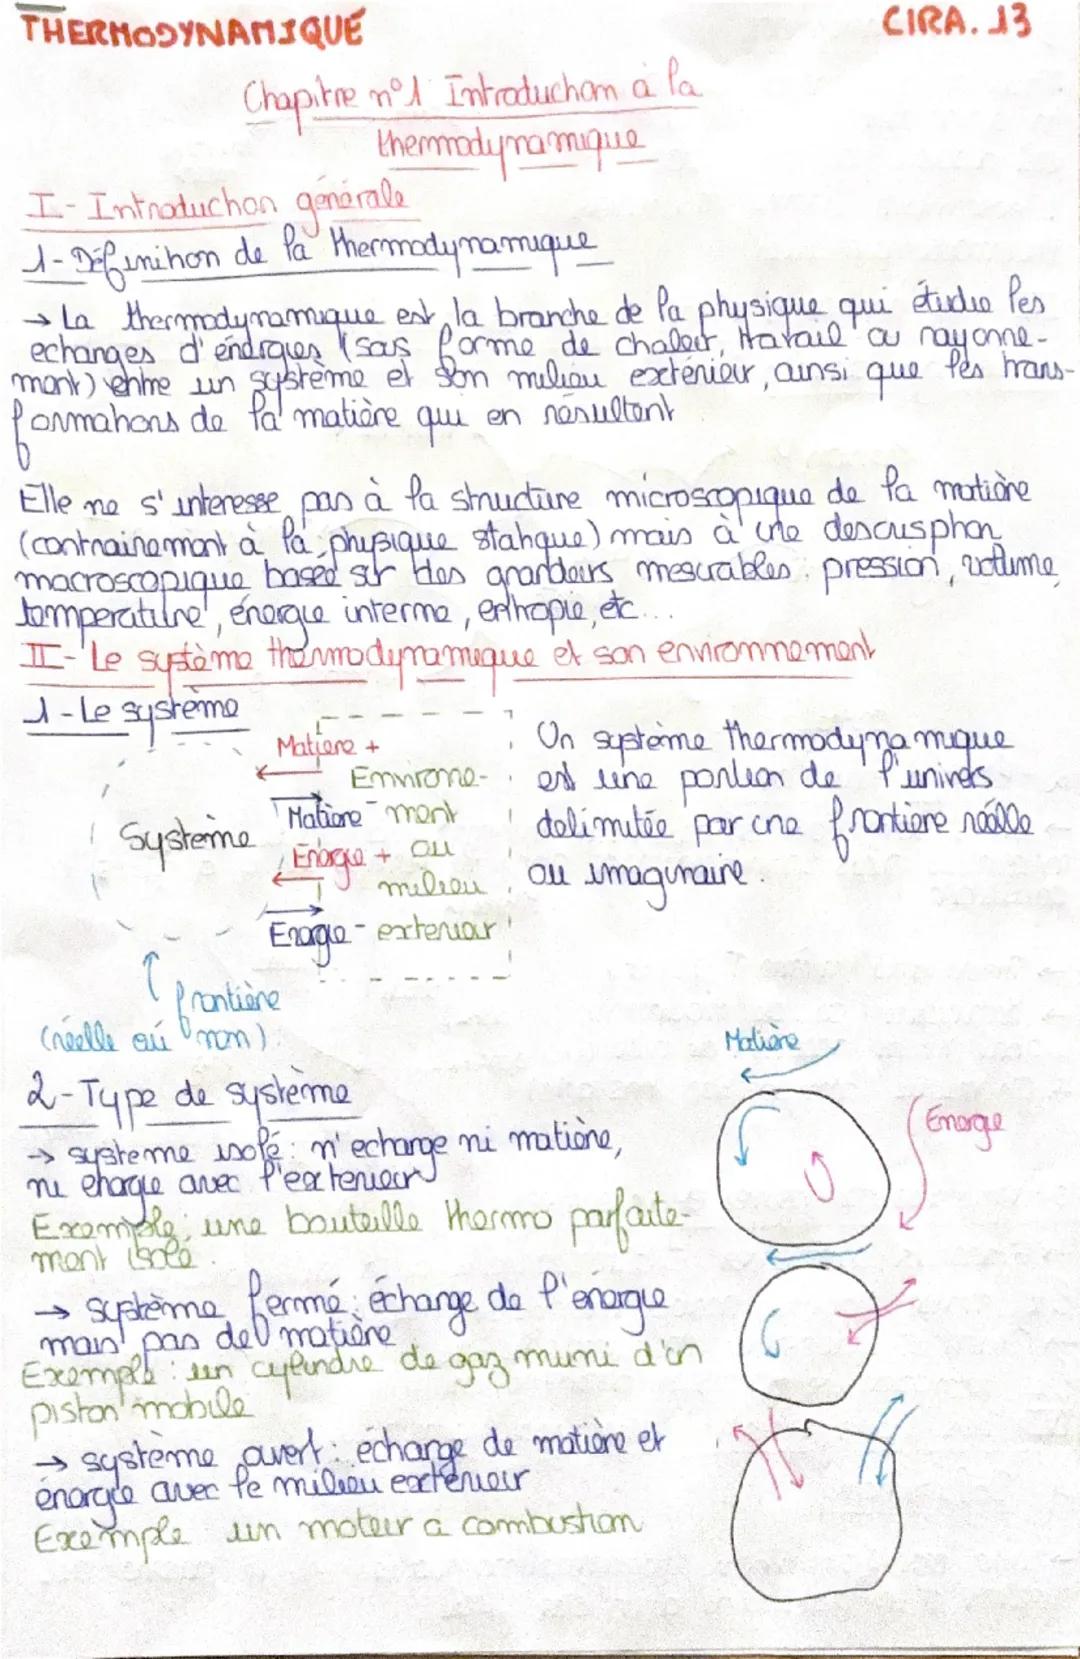 THERMODYNAMIQUE
CIRA. 13
Chapitre n°1 Introduction à la
thermodynamique
I- Introduction générale
1- Définition de la thermodynamique
→ La thermodynamique est la branche de la physique qui étudie les
echanges d'énérgies (sous forme de chaleur, travail ou rayonne-
ment) entre un système et son milieu exterieur, ainsi que les trans-
formations de la matière qui en résultent
Elle ne s'interesse pas à la structure microscopique de la matière
(contrairement à la physique statique) mais à une description
macroscopique based sur des grandeurs mesurables : pression, volume,
temperature, énergie interne, enthropie, etc...
II- Le système thermodynamique et son environnement
1- Le système
Matiere +
Environne-
Matière - ment
Système
Energie + ou
milieu
Energie - exterieur
frontière
(réelle où non)
Un système thermodynamique
est une portion de l'univers
delimitée par une frontière réelle
ou imaginaire.
2- Type de système
→ systeme isolé : n'echange ni matière,
ni energie avec l'exterieur
Exemple : une bouteille thermo parfaite-
ment isolé.
→ système fermé : échange de l'énergie
mais pas de matière
Exemple : un cylindre de gaz muni d'un
piston mobile
→ système ouvert : échange de matière et
énergie avec le milieu extérieur
Exemple un moteur a combustion
Matière
Energie